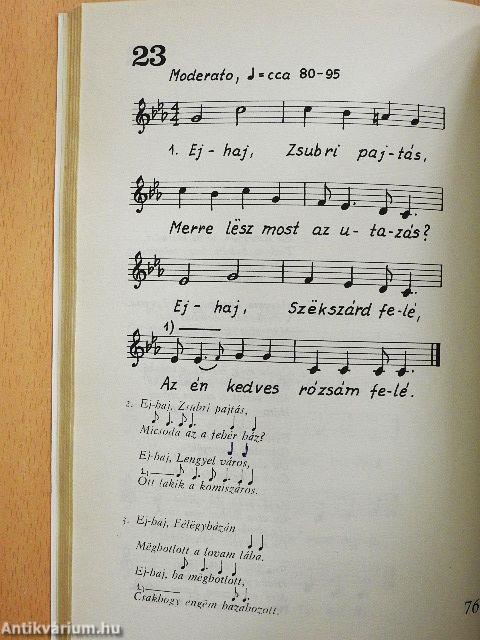 23
Moderato, ♩=cca 80-95
1. Ej-haj, Zsubri paj-tás,
Merre lësz most az u-ta-zás?
Ej-haj, Szëkszárd fe-lé,
1)
Az én kedves rózsám fe-lé.
2. Ej-haj, Zsubri pajtás,
Micsoda az a fehér ház?
Ej-haj, Lengyel város,
1)
Ott lakik a komiszáros.
3. Ej-haj, Félëgyházán
Mëgbotlott a lovam lába.
Ej-haj, ha mëgbotlott,
1)
Csakhogy engëm hazahozott.
76
Antikvárium.hu